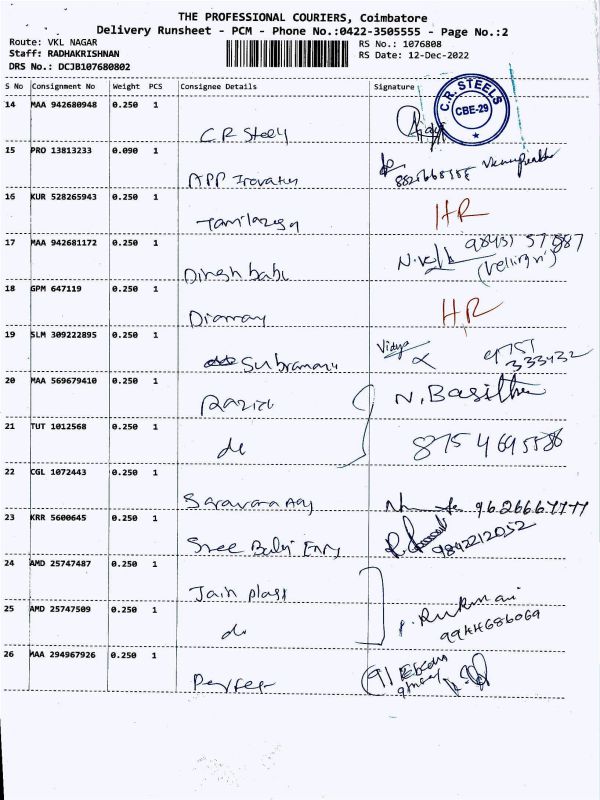 THE PROFESSIONAL COURIERS, Coimbatore
Delivery Runsheet - PCM - Phone No.:0422-3505555 - Page No.:2
Route: VKL NAGAR
Staff: RADHAKRISHNAN
DRS No.: DCJB107680802
RS No.: 1076808
RS Date: 12-Dec-2022
S No Consignment No Weight PCS Consignee Details Signature
14 MAA 942680948 0.250 1
C.R Steely
C.R. STEELS
CBE-29
15 PRO 13813233 0.090 1
APP
16 KUR 528265943 0.250 1
HR
17 MAA 942681172 0.250 1
Dinesh babu
(Vellingiri)
18 GPM 647119 0.250 1
HR
19 SLM 309222895 0.250 1
Subramani Vidya
9751
333432
20 MAA 569679410 0.250 1
N. Basitha
21 TUT 1012568 0.250 1
do
22 CGL 1072443 0.250 1
9626667777
23 KRR 5600645 0.250 1
Sree Balaji Engg
9842212052
24 AMD 25747487 0.250 1
Jain plast
25 AMD 25747509 0.250 1
do P. Rukmani
9944686069
26 MAA 294967926 0.250 1